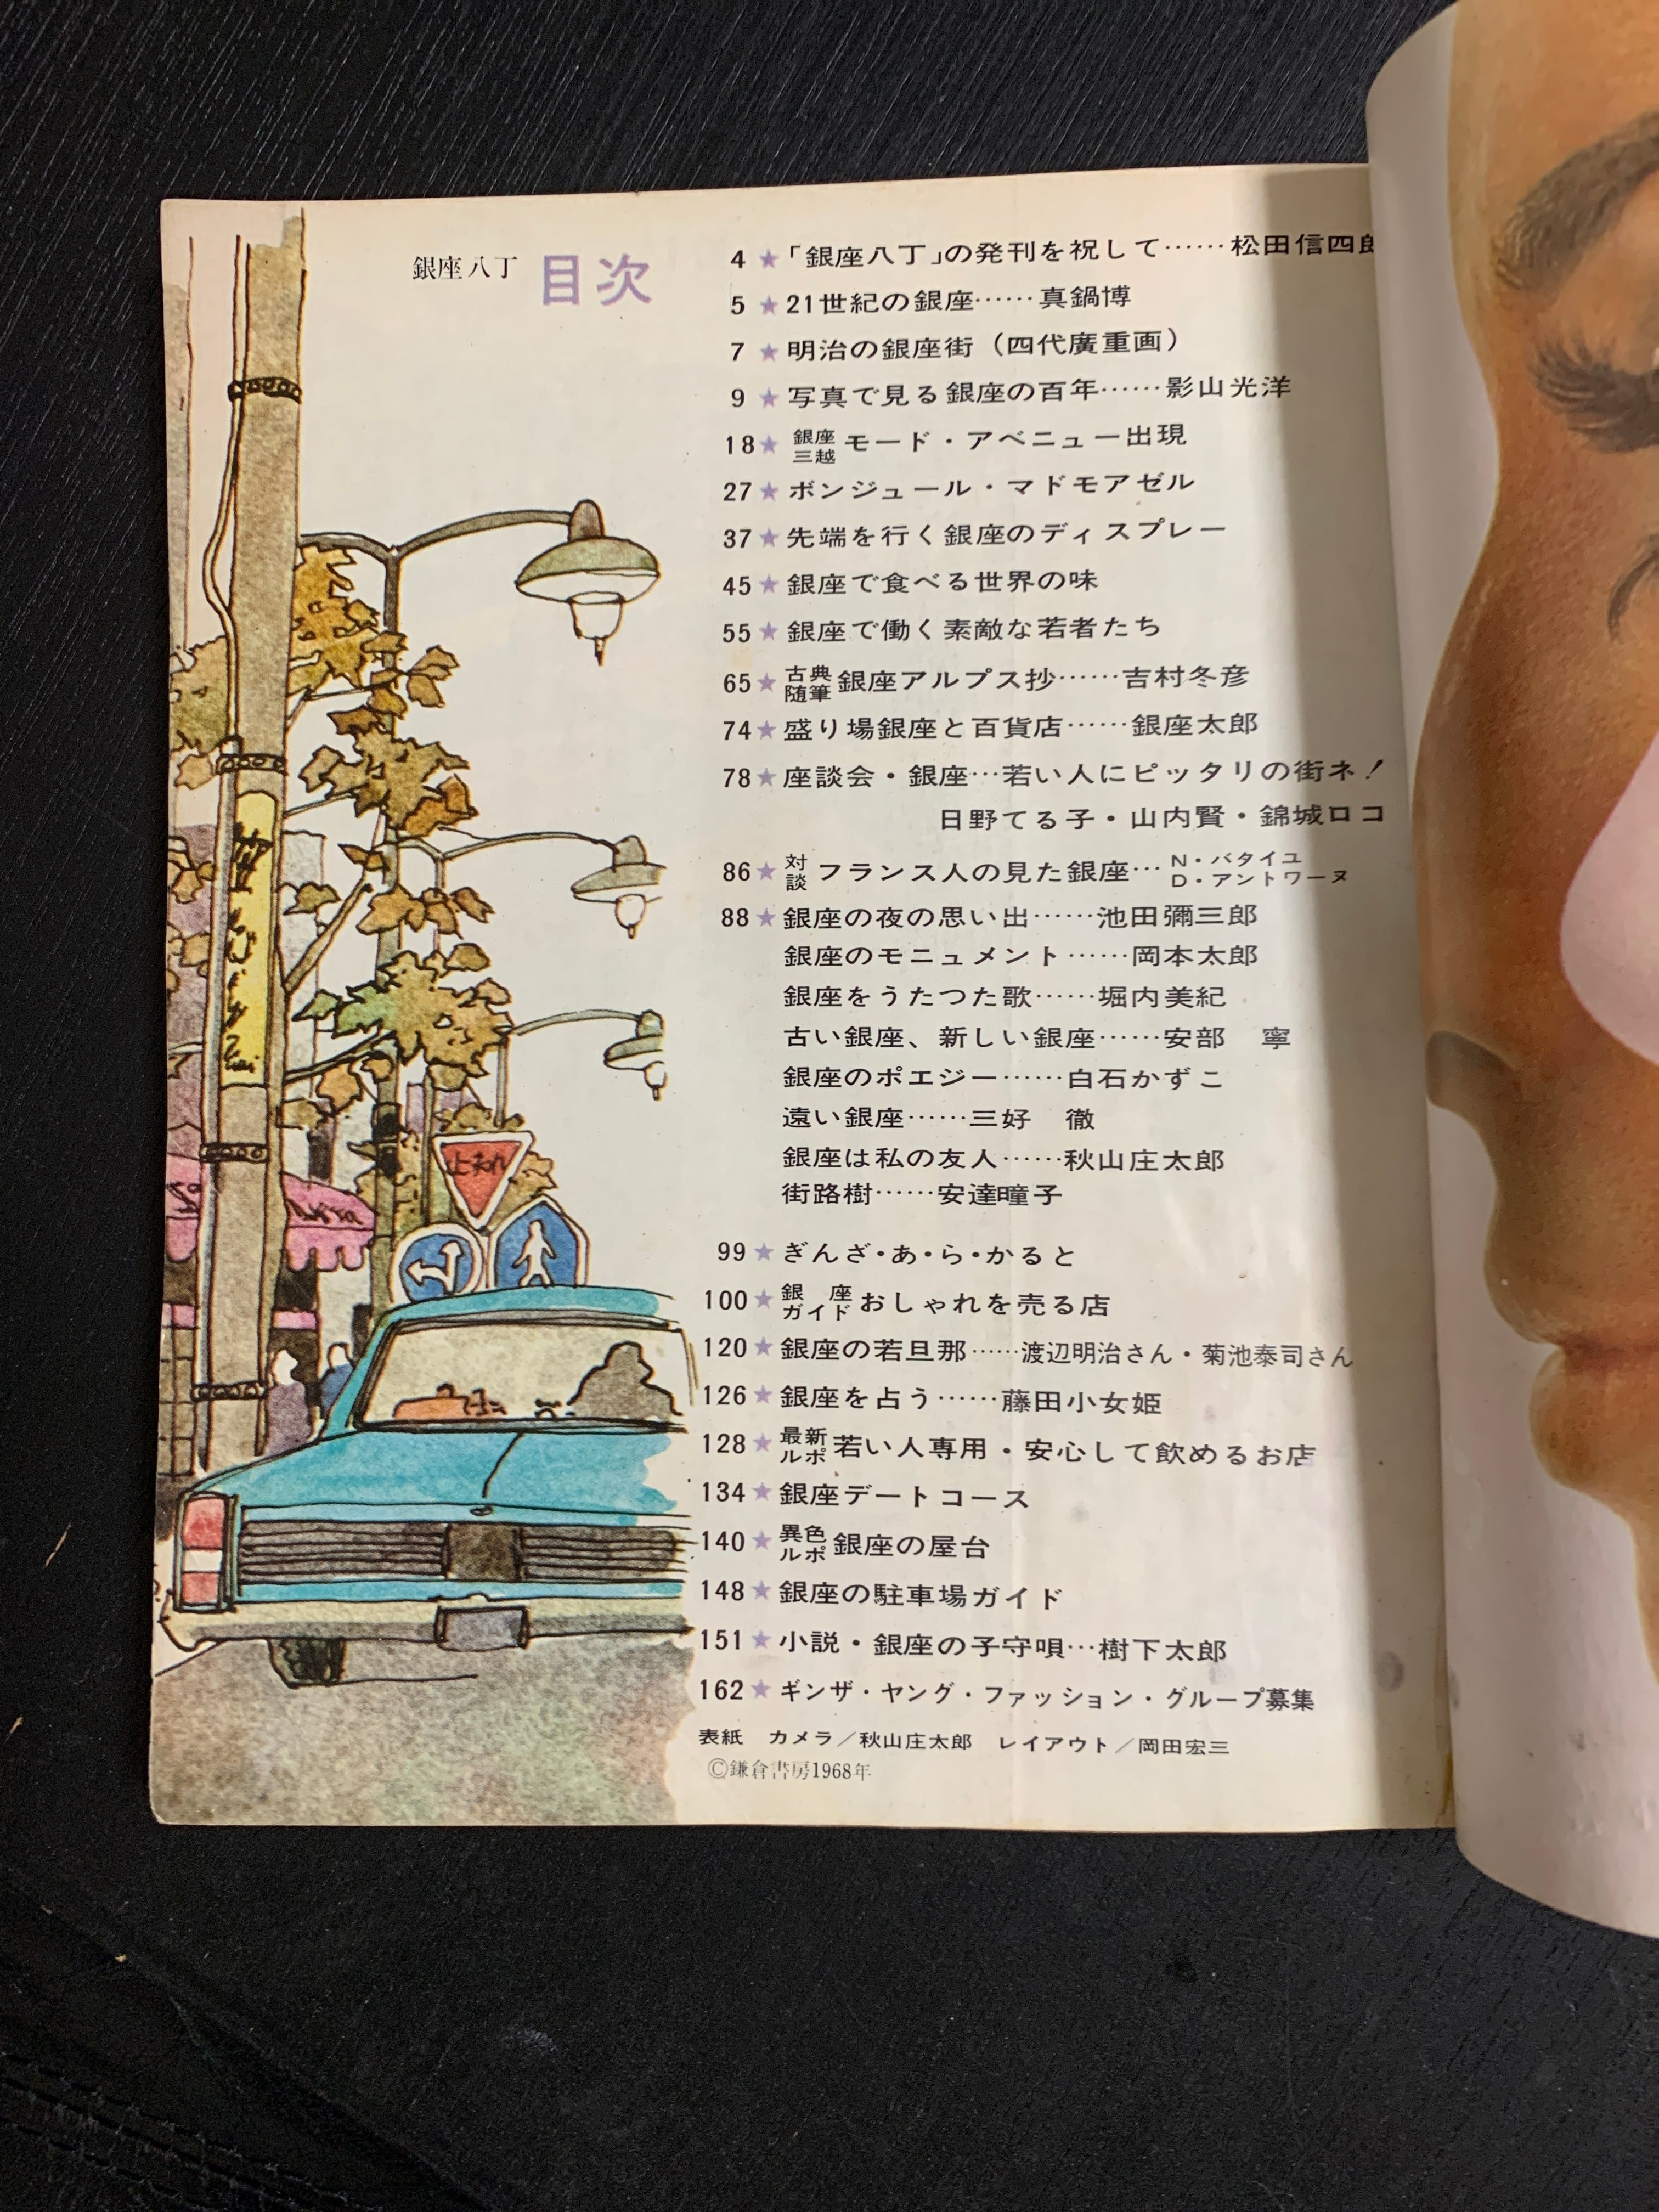 銀座八丁 目次
4★「銀座八丁」の発刊を祝して……松田信四郎
5★21世紀の銀座……真鍋博
7★明治の銀座街（四代廣重画）
9★写真で見る銀座の百年……影山光洋
18★銀座三越モード・アベニュー出現
27★ボンジュール・マドモアゼル
37★先端を行く銀座のディスプレー
45★銀座で食べる世界の味
55★銀座で働く素敵な若者たち
65★古典随筆銀座アルプス抄……吉村冬彦
74★盛り場銀座と百貨店……銀座太郎
78★座談会・銀座…若い人にピッタリの街ネ！
日野てる子・山内賢・錦城ロコ
86★対談フランス人の見た銀座…N・バタイユ D・アントワーヌ
88★銀座の夜の思い出……池田彌三郎
銀座のモニュメント……岡本太郎
銀座をうたつた歌……堀内美紀
古い銀座、新しい銀座……安部　寧
銀座のポエジー……白石かずこ
遠い銀座……三好　徹
銀座は私の友人……秋山庄太郎
街路樹……安達瞳子
99★ぎんざ・あ・ら・かると
100★銀座ガイドおしゃれを売る店
120★銀座の若旦那……渡辺明治さん・菊池泰司さん
126★銀座を占う……藤田小女姫
128★最新ルポ若い人専用・安心して飲めるお店
134★銀座デートコース
140★異色ルポ銀座の屋台
148★銀座の駐車場ガイド
151★小説・銀座の子守唄…樹下太郎
162★ギンザ・ヤング・ファッション・グループ募集
表紙　カメラ／秋山庄太郎　レイアウト／岡田宏三
©鎌倉書房1968年
止まれ